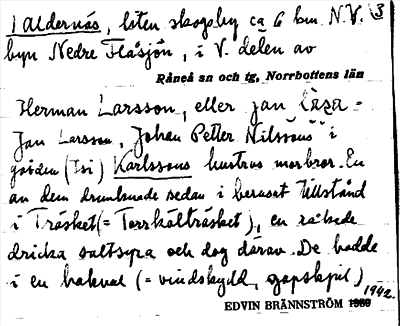 i Aldernäs, liten skogsby ca 6 km N.V. 3
byn Nedre Flåsjön, i V. delen av
Råneå sn och tg, Norrbottens län
Herman Larsson, eller Jan Lasa =
Jan Larsson, Johan Petter Nilssons i
gården (Isi) Karlssons hustrus morbror. En
av dem drunknade sedan i berusat tillstånd
i Träsket (= Torrkälträsket), en råkade
dricka saltsyra och dog därav. De hade
i en bakval (= vindskydd, gapskjul)
1942.
EDVIN BRÄNNSTRÖM